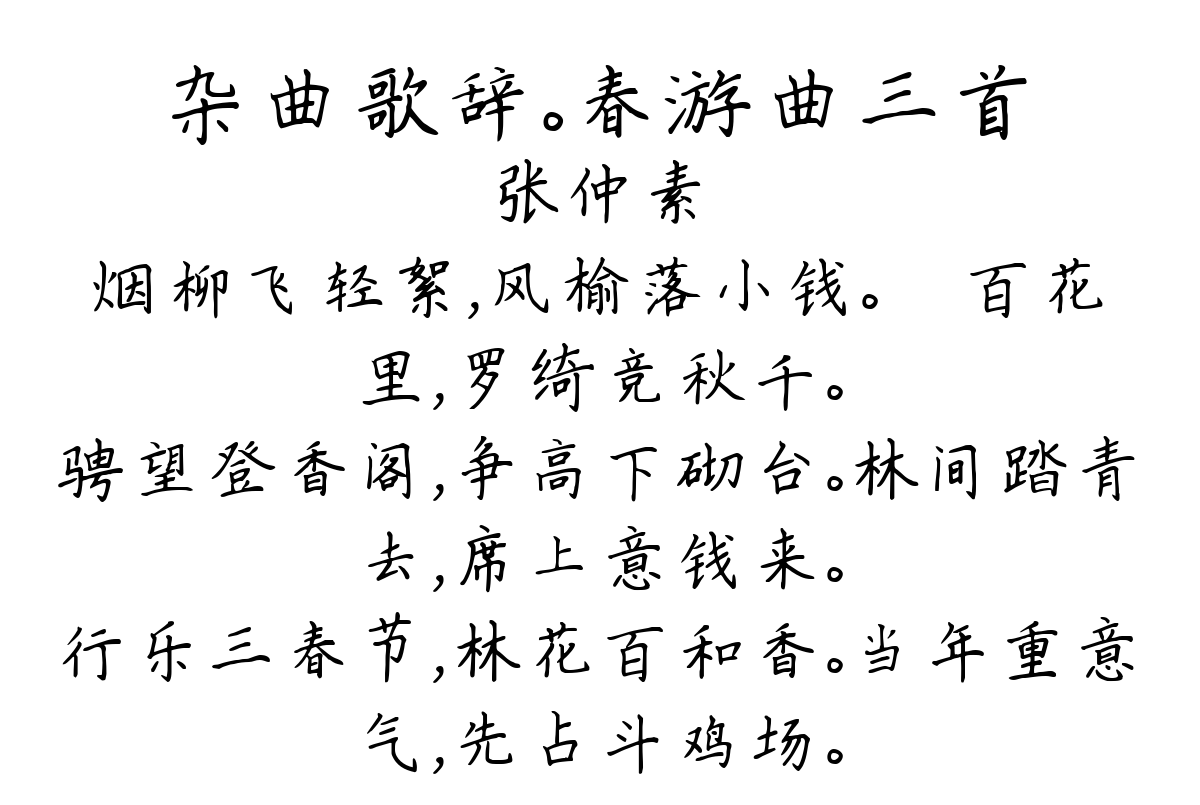 杂曲歌辞。春游曲三首
张仲素
烟柳飞轻絮,风榆落小钱。 百花
里,罗绮竞秋千。
骋望登香阁,争高下砌台。林间踏青
去,席上意钱来。
行乐三春节,林花百和香。当年重意
气,先占斗鸡场。